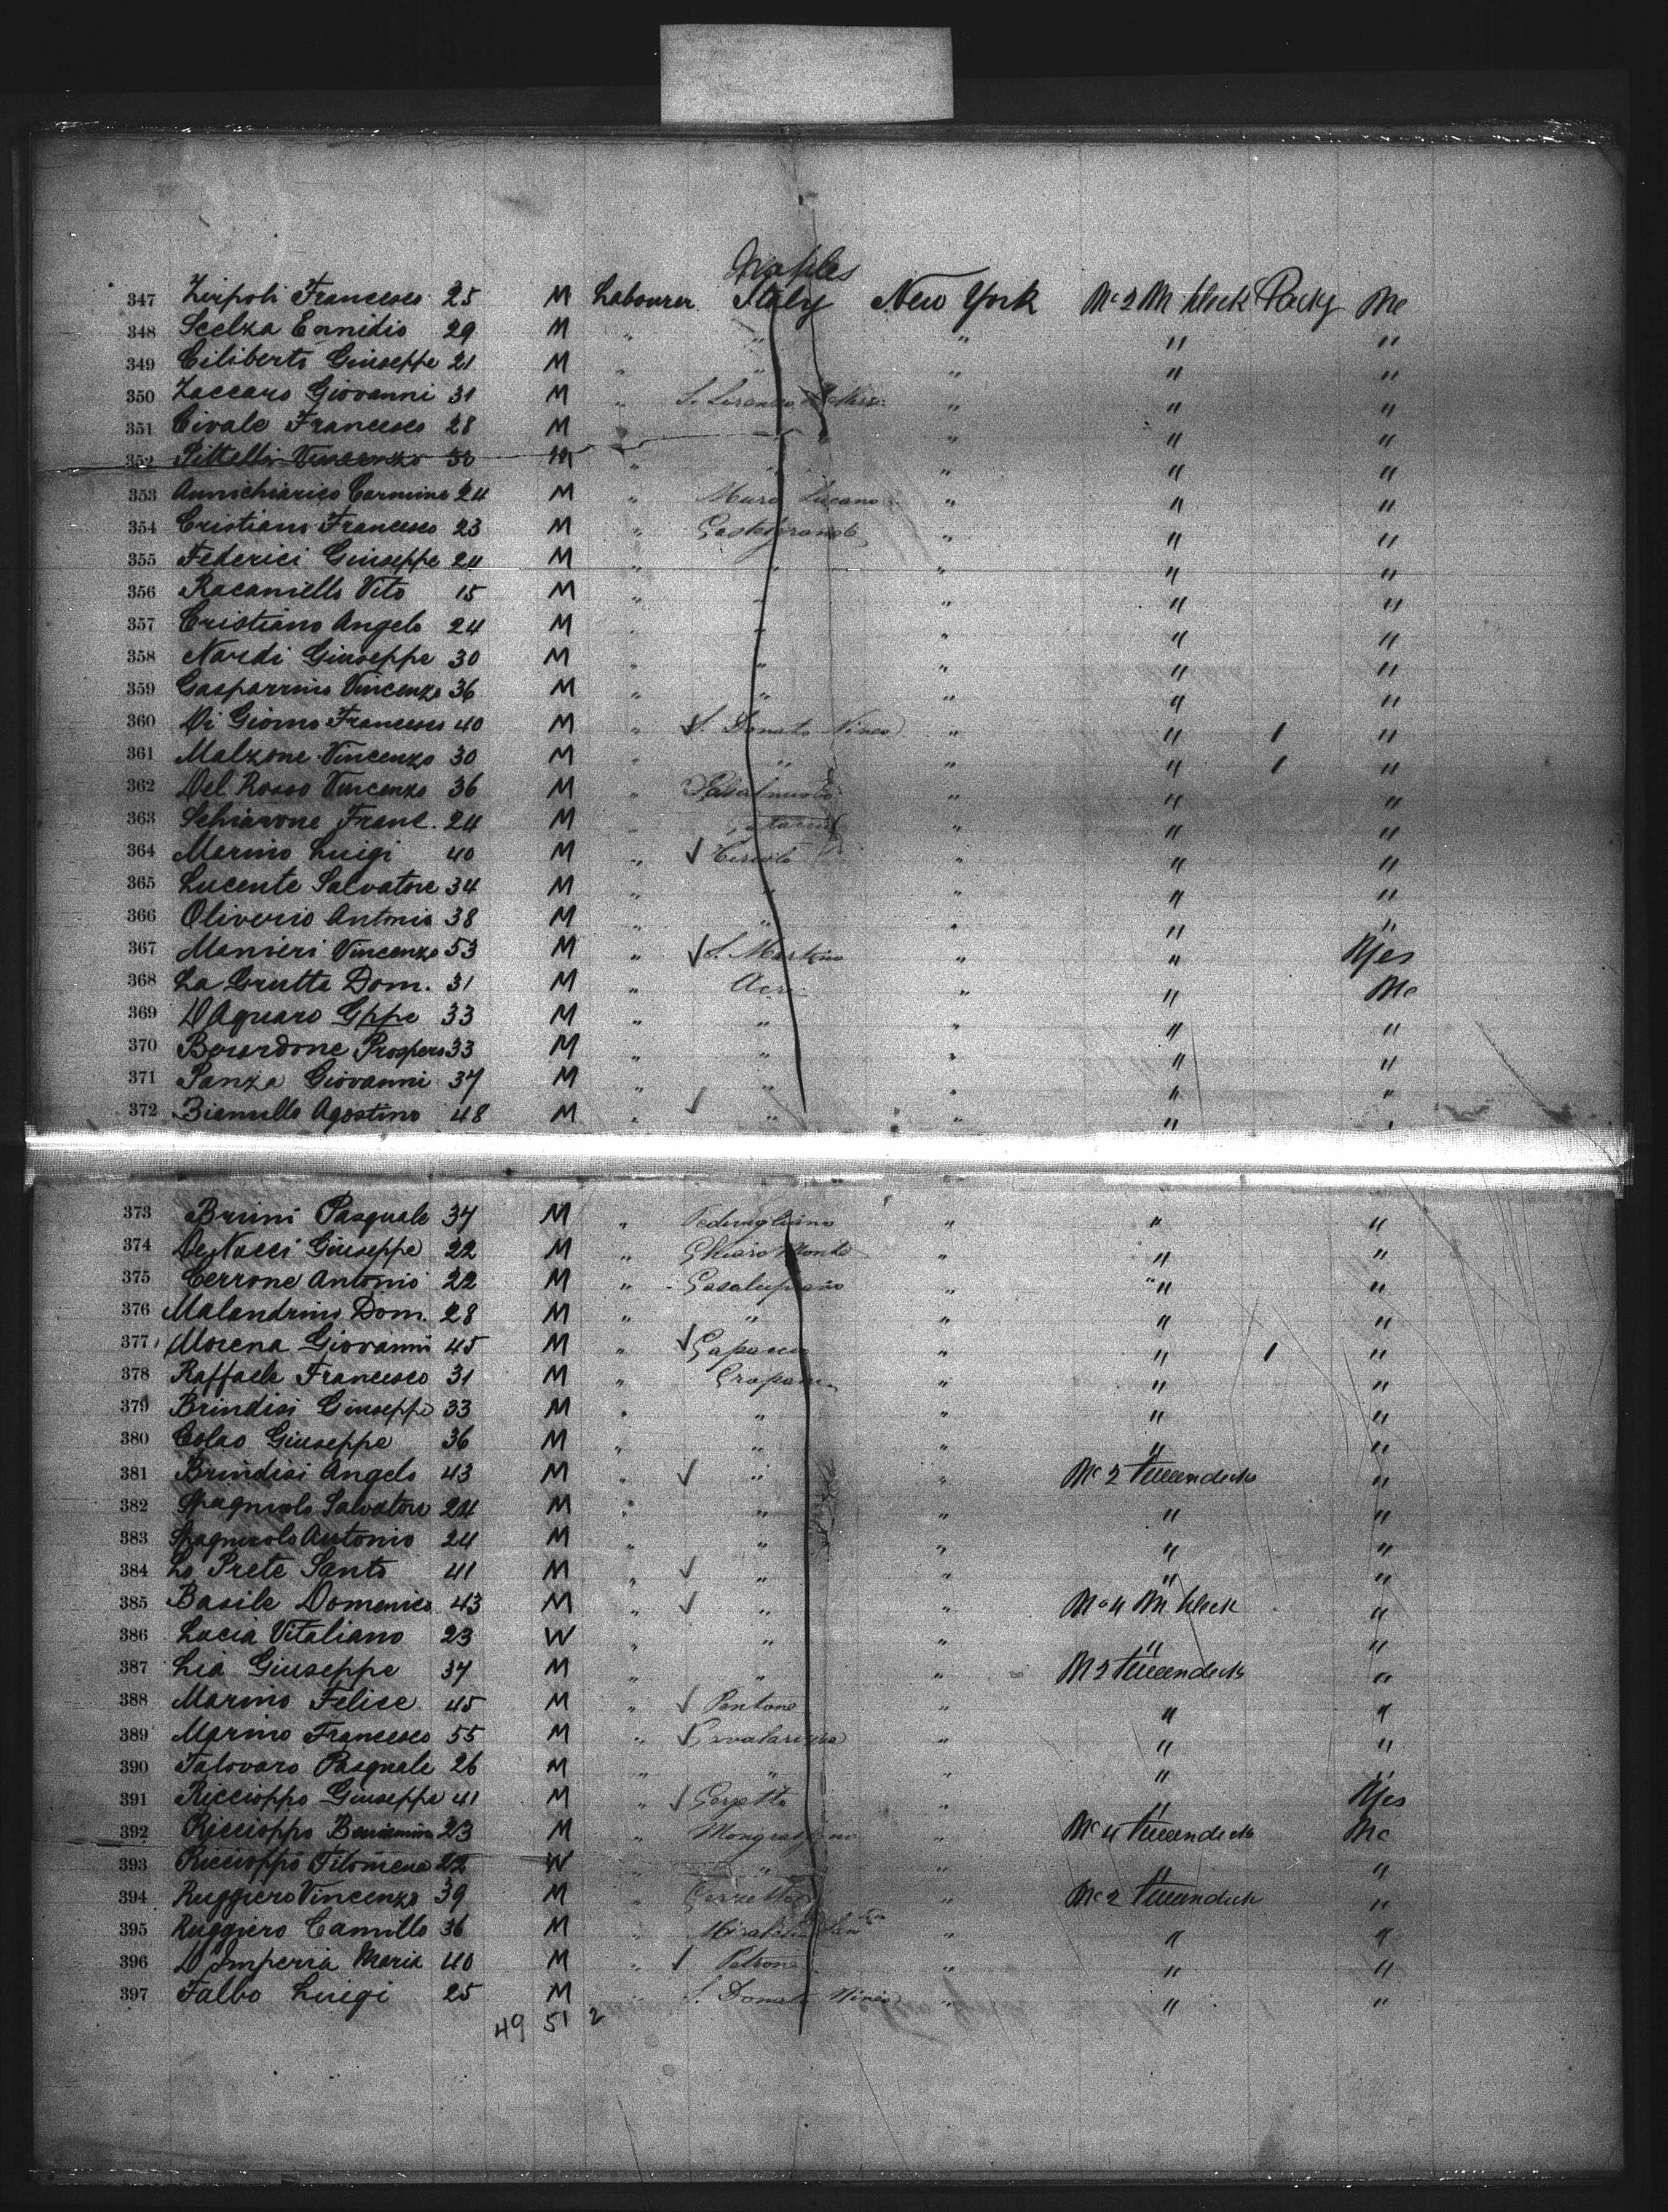 Naples
347 Zirpoli Francesco 25 M Labourer Italy New York No 2 M bleck Packg No
348 Scelza Ennidio 29 M " " " " "
349 Ciliberti Giuseppe 21 M " " " " "
350 Zaccaro Giovanni 31 M " S. Lorenzo " " "
351 Civale Francesco 28 M " " " " "
352 Pittelli Vincenzo 30 M " " " " "
353 Annichiarico Carmine 24 M " Muro Lucano " " "
354 Cristiano Francesco 23 M " Castelgrande " " "
355 Federici Giuseppe 24 M " " " " "
356 Racaniello Vito 15 M " " " " "
357 Cristiano Angelo 24 M " " " " "
358 Nardi Giuseppe 30 M " " " " "
359 Gasparrino Vincenzo 36 M " " " " "
360 Di Giorno Francesco 40 M " S. Donato Ninea " " 1 "
361 Malzone Vincenzo 30 M " " " " 1 "
362 Del Rosso Vincenzo 36 M " " " "
363 Schiavone Franc. 24 M " " " "
364 Marino Luigi 40 M " " " "
365 Lucente Salvatore 34 M " " " " "
366 Oliverio Antonio 38 M " " " " "
367 Manieri Vincenzo 53 M " S. Martino " " Yes
368 La Grutta Dom. 31 M " Acri " " No
369 D'Aquaro Gppe 33 M " " " " "
370 Berardone Prospero 33 M " " " " "
371 Panza Giovanni 37 M " " " " "
372 Biemullo Agostino 48 M " " " " "
373 Bruni Pasquale 34 M " " " "
374 De Nucci Giuseppe 22 M " Chiaromonte " " "
375 Cerrone Antonio 22 M " " " "
376 Malandrino Dom. 28 M " " " " "
377 Morena Giovanni 45 M " Capaccio " " 1 "
378 Raffaele Francesco 31 M " Cropani " " "
379 Brindisi Giuseppe 33 M " " " " "
380 Colao Giuseppe 36 M " " " " "
381 Brindisi Angelo 43 M " " " No 2 "
382 Spagnuolo Salvatore 24 M " " " " "
383 Spagnuolo Antonio 24 M " " " " "
384 Lo Prete Santo 41 M " " " " "
385 Basile Domenico 43 M " " " No 4 M bleck "
386 Lucia Vitaliano 23 W " " " " "
387 Lia Giuseppe 37 M " " " "
388 Marino Felice 45 M " Pentone " " "
389 Marino Francesco 55 M " " " "
390 Talovaro Pasquale 26 M " " " " "
391 Riccioppo Giuseppe 41 M " " " Yes
392 Riccioppo Beniamino 23 M " Mongrassano " No 4 No
393 Riccioppo Filomena 22 W " " " " "
394 Ruggiero Vincenzo 39 M " " No 2 "
395 Ruggiero Camillo 36 M " " " "
396 D'Imperia Maria 40 M " " " "
397 Falbo Luigi 25 M " S. Donato Ninea " " "
49 51 2